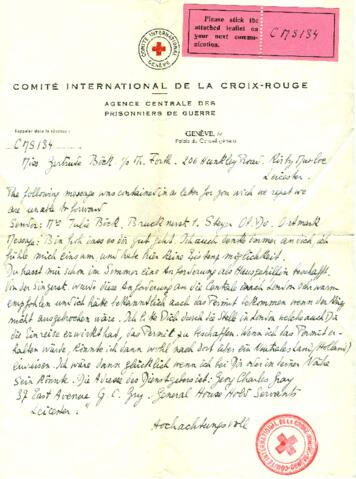 Please stick the
attached leaflet on
your next commu-
nication.
CMS134
COMITÉ INTERNATIONAL
GENÈVE
COMITÉ INTERNATIONAL DE LA CROIX-ROUGE
AGENCE CENTRALE DES
PRISONNIERS DE GUERRE
Rappeler dans la réponse :
GENÈVE, le
Palais du Conseil général
CMS134
Miss Gertrude Böck Forth. 206 Hinckley Road. Kirby
Leicester.
The following message was contained in a letter for you wich we repeat we
are unable to forward
Sender: Julia Böck, Brucknerstr 1. Steyr Ostmark
Message: Bin froh dass es dir gut geht. Ich auch denke immer an dich, ich
fühle mich einsam, und habe hier keine Existenzmöglichkeit.
Du hast mir schon im Sommer eine Anforderung als Hausgehilfin verschafft.
Von der wurde diese Anforderung an die Centrale nach London warm
empfohlen und ich hätte das Permit bekommen wenn der Krieg
nicht ausgebrochen wäre. Ich bitte Dich durch die Stelle in London welche nach Du
die Einreise erwirkt hat, das Permit zu beschaffen. Wenn ich das Permit er-
halten würde, könnte ich dann wohl noch dort über ein neutrales Land (Holland)
einreisen. Ich wäre dann glücklich wenn ich bei Dir oder in deiner Nähe
sein könnte. Die Adresse des Dienstgebers ist: Charles Gray
37 East Avenue G. C. Gray. General House Hold Servants
Leicester.
Hochachtungsvoll
COMITÉ INTERNATIONAL DE LA CROIX-ROUGE